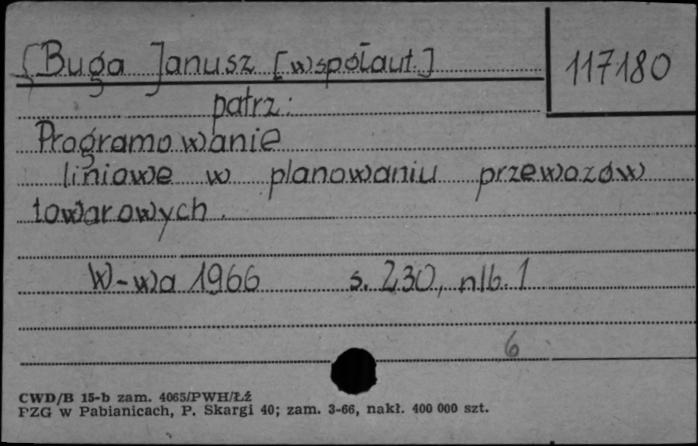 Buga Janusz [współaut.]
117180
patrz:
Programowanie
liniowe w planowaniu przewozów
towarowych.
W-wa 1966 s. 230, nlb. 1
6
CWD/B 15-b zam. 4065/PWH/Łź
PZG w Pabianicach, P. Skargi 40; zam. 3-66, nakł. 400 000 szt.